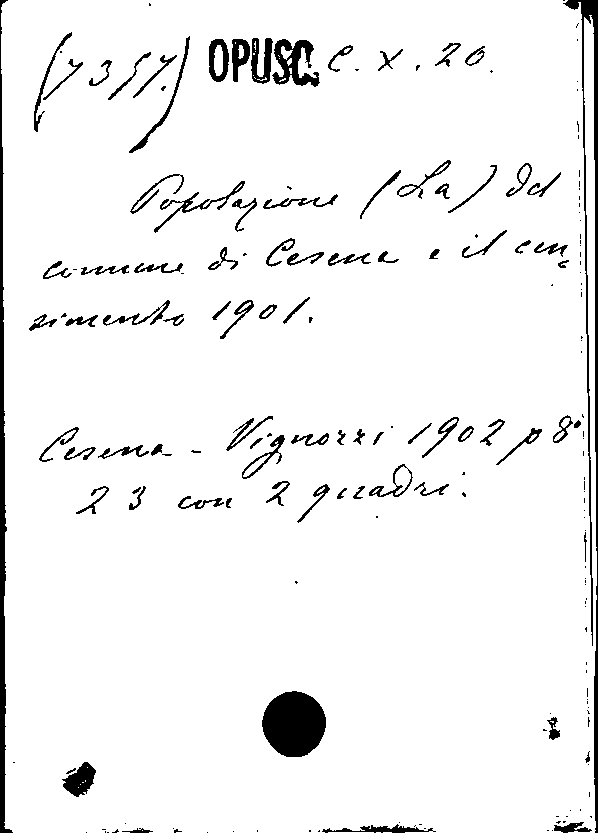 (7357.) OPUSC. C. X. 20.
Popolazione (La) del
comune di Cesena e il cen-
simento 1901.
Cesena - Vignozzi 1902 p 8°
23 con 2 quadri.